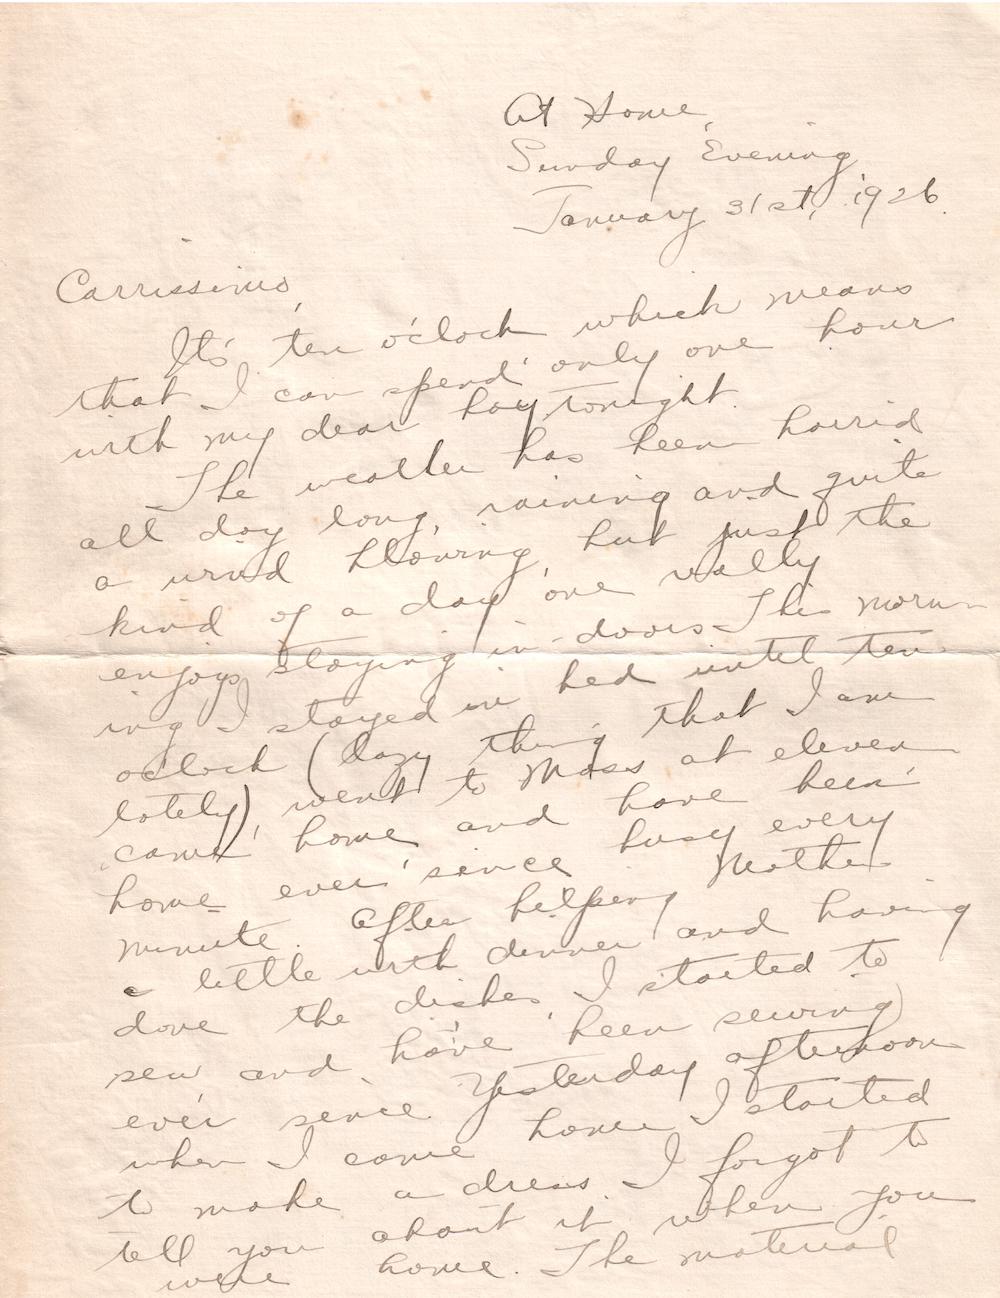 At Home,
Sunday Evening
January 31st, 1926.
Carrissimo,
It's ten o'clock which means
that I can spend only one hour
with my dear boy tonight.
The weather has been horrid
all day long, raining and quite
a wind blowing, but just the
kind of a day one really
enjoys staying in-doors. This morn-
ing I stayed in bed until ten
o'clock (lazy thing that I am
lately), went to Mass at eleven
came home and have been
home ever since busy every
minute. After helping Mother
a little with dinner and having
done the dishes, I started to
sew and have been sewing
ever since. Yesterday afternoon
when I came home I started
to make a dress. I forgot to
tell you about it when you
were home. The material